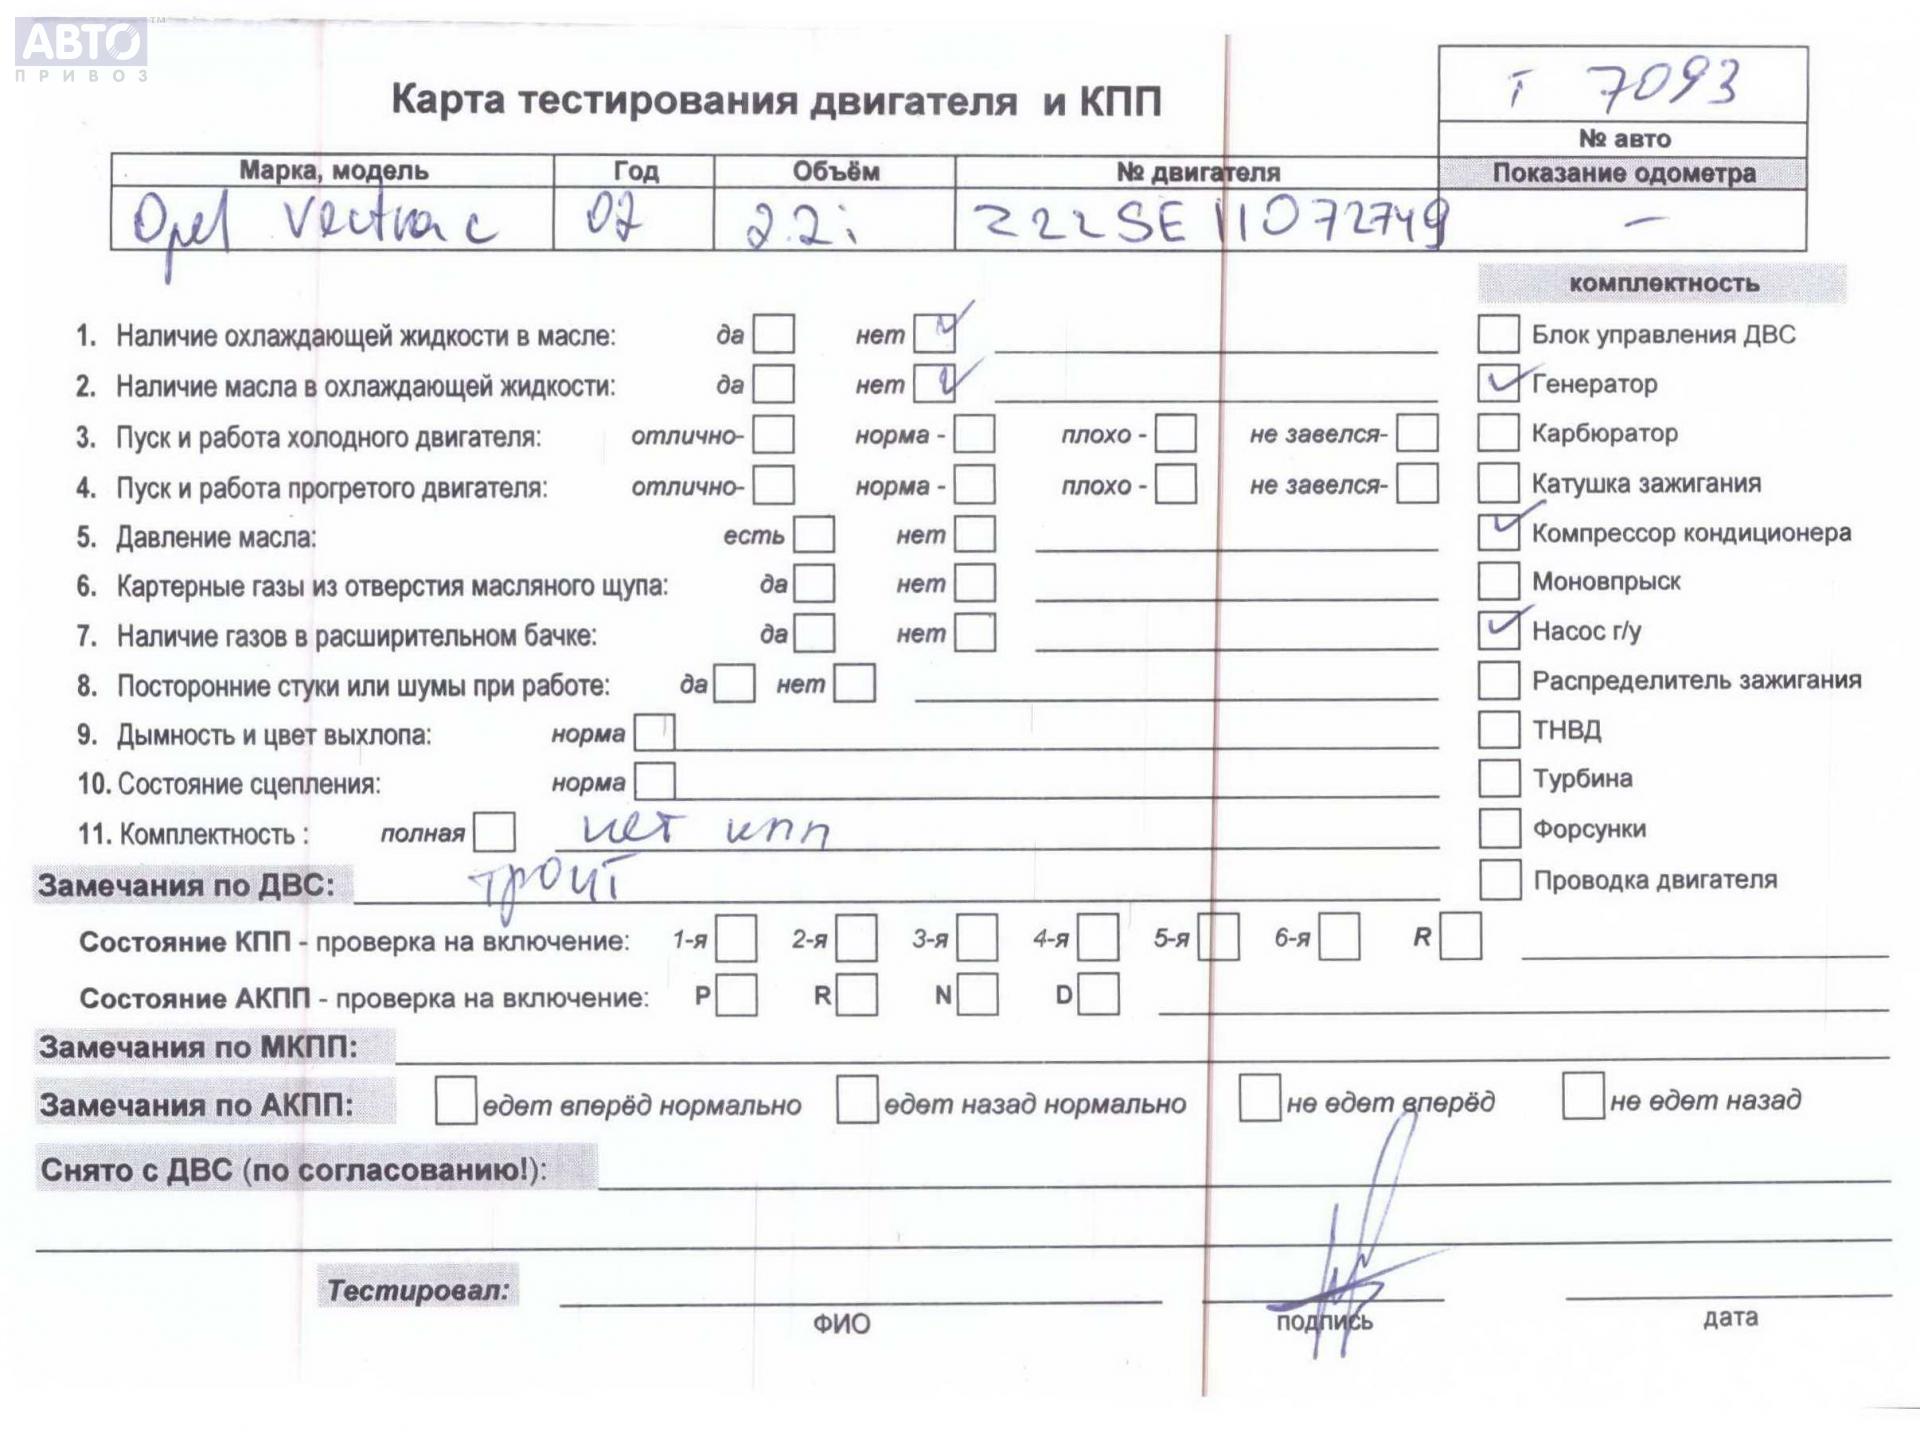 АВТО™
ПРИВОЗ
Карта тестирования двигателя и КПП
т 7093
№ авто
Марка, модель Год Объём № двигателя Показание одометра
Opel Vectra c 02 2.2i Z22SE 11072749 —
комплектность
1. Наличие охлаждающей жидкости в масле: да нет
Блок управления ДВС
2. Наличие масла в охлаждающей жидкости: да нет
Генератор
3. Пуск и работа холодного двигателя: отлично- норма - плохо - не завелся-
Карбюратор
4. Пуск и работа прогретого двигателя: отлично- норма - плохо - не завелся-
Катушка зажигания
5. Давление масла: есть нет
Компрессор кондиционера
6. Картерные газы из отверстия масляного щупа: да нет
Моновпрыск
7. Наличие газов в расширительном бачке: да нет
Насос г/у
8. Посторонние стуки или шумы при работе: да нет
Распределитель зажигания
9. Дымность и цвет выхлопа: норма
ТНВД
10. Состояние сцепления: норма
Турбина
11. Комплектность : полная нет кпп
Форсунки
Замечания по ДВС: троит
Проводка двигателя
Состояние КПП - проверка на включение: 1-я 2-я 3-я 4-я 5-я 6-я R
Состояние АКПП - проверка на включение: P R N D
Замечания по МКПП:
Замечания по АКПП: едет вперёд нормально едет назад нормально не едет вперёд не едет назад
Снято с ДВС (по согласованию!):
Тестировал:
ФИО подпись дата